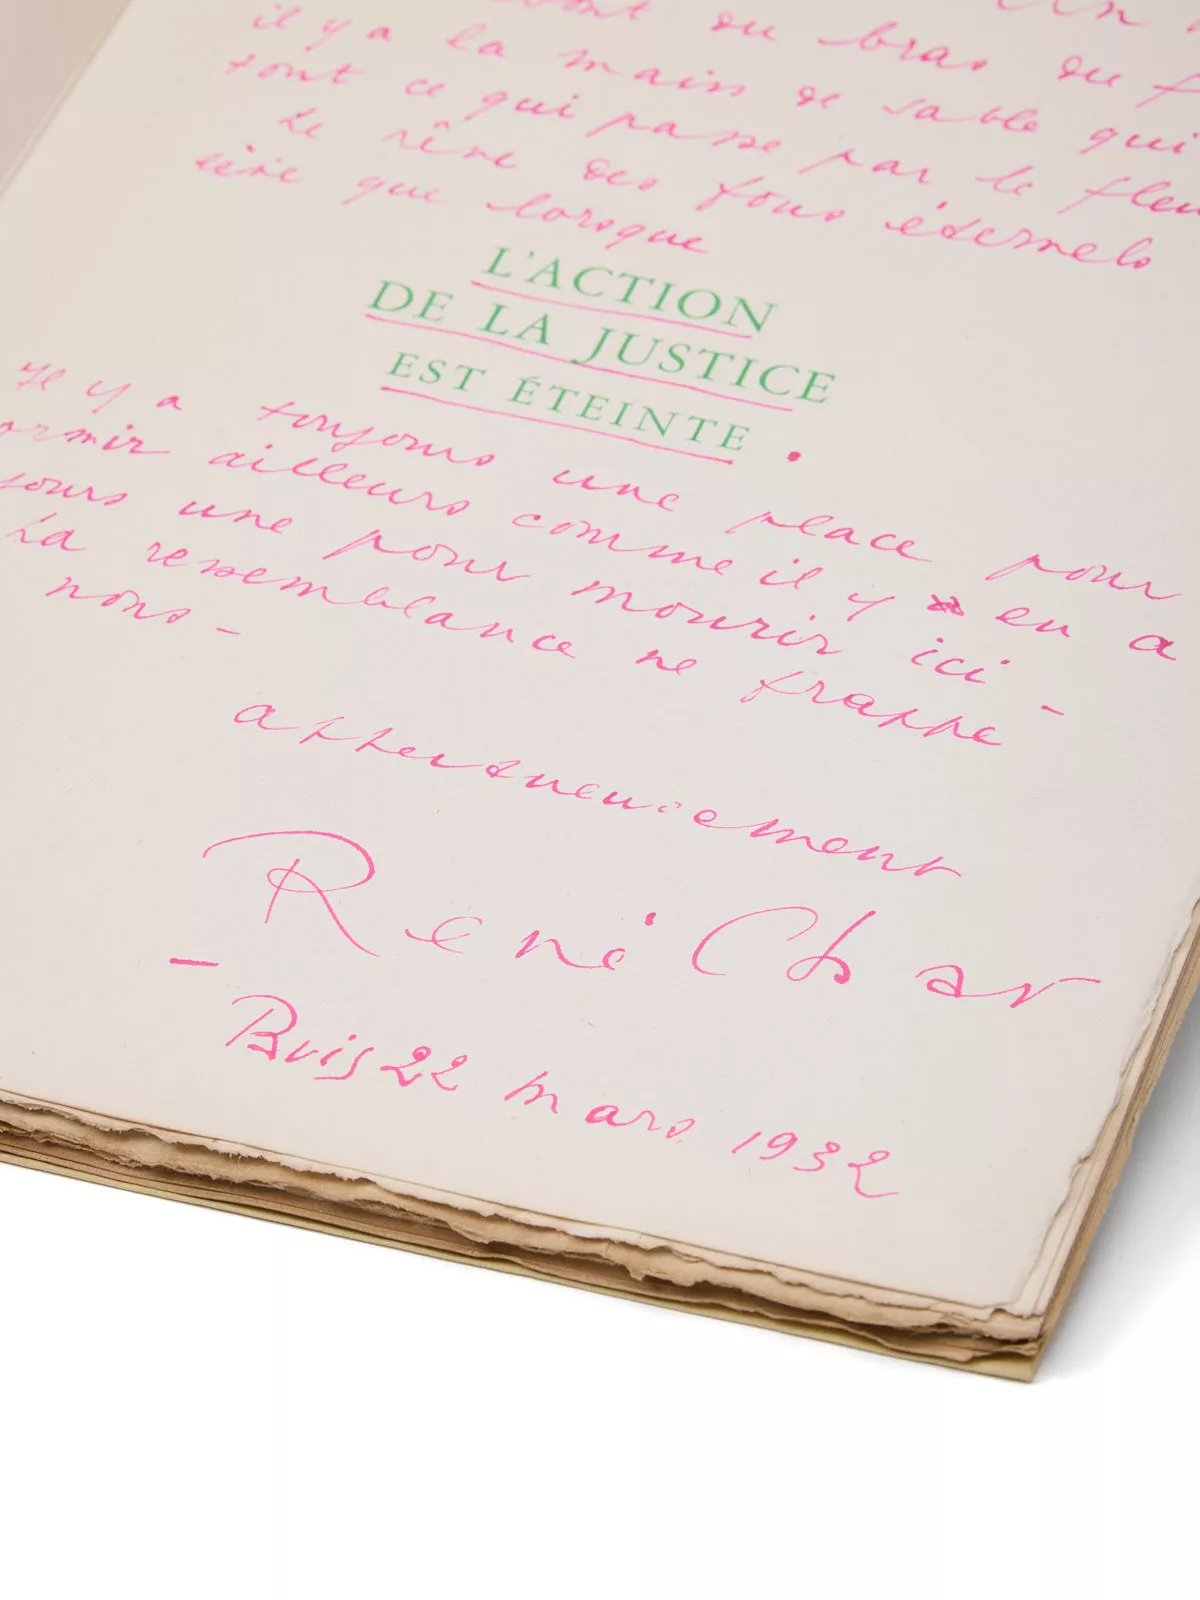 du bras du
il y a la main de sable qui
tout ce qui passe par le fleu
Le rêve des fous éternels
que lorsque
L'ACTION
DE LA JUSTICE
EST ÉTEINTE.
Il y a toujours une place pour
ormir ailleurs comme il y en a
jours une pour mourir ici -
La ressemblance ne frappe
nous -
affectueusement
René Char
- Paris 22 mars 1932